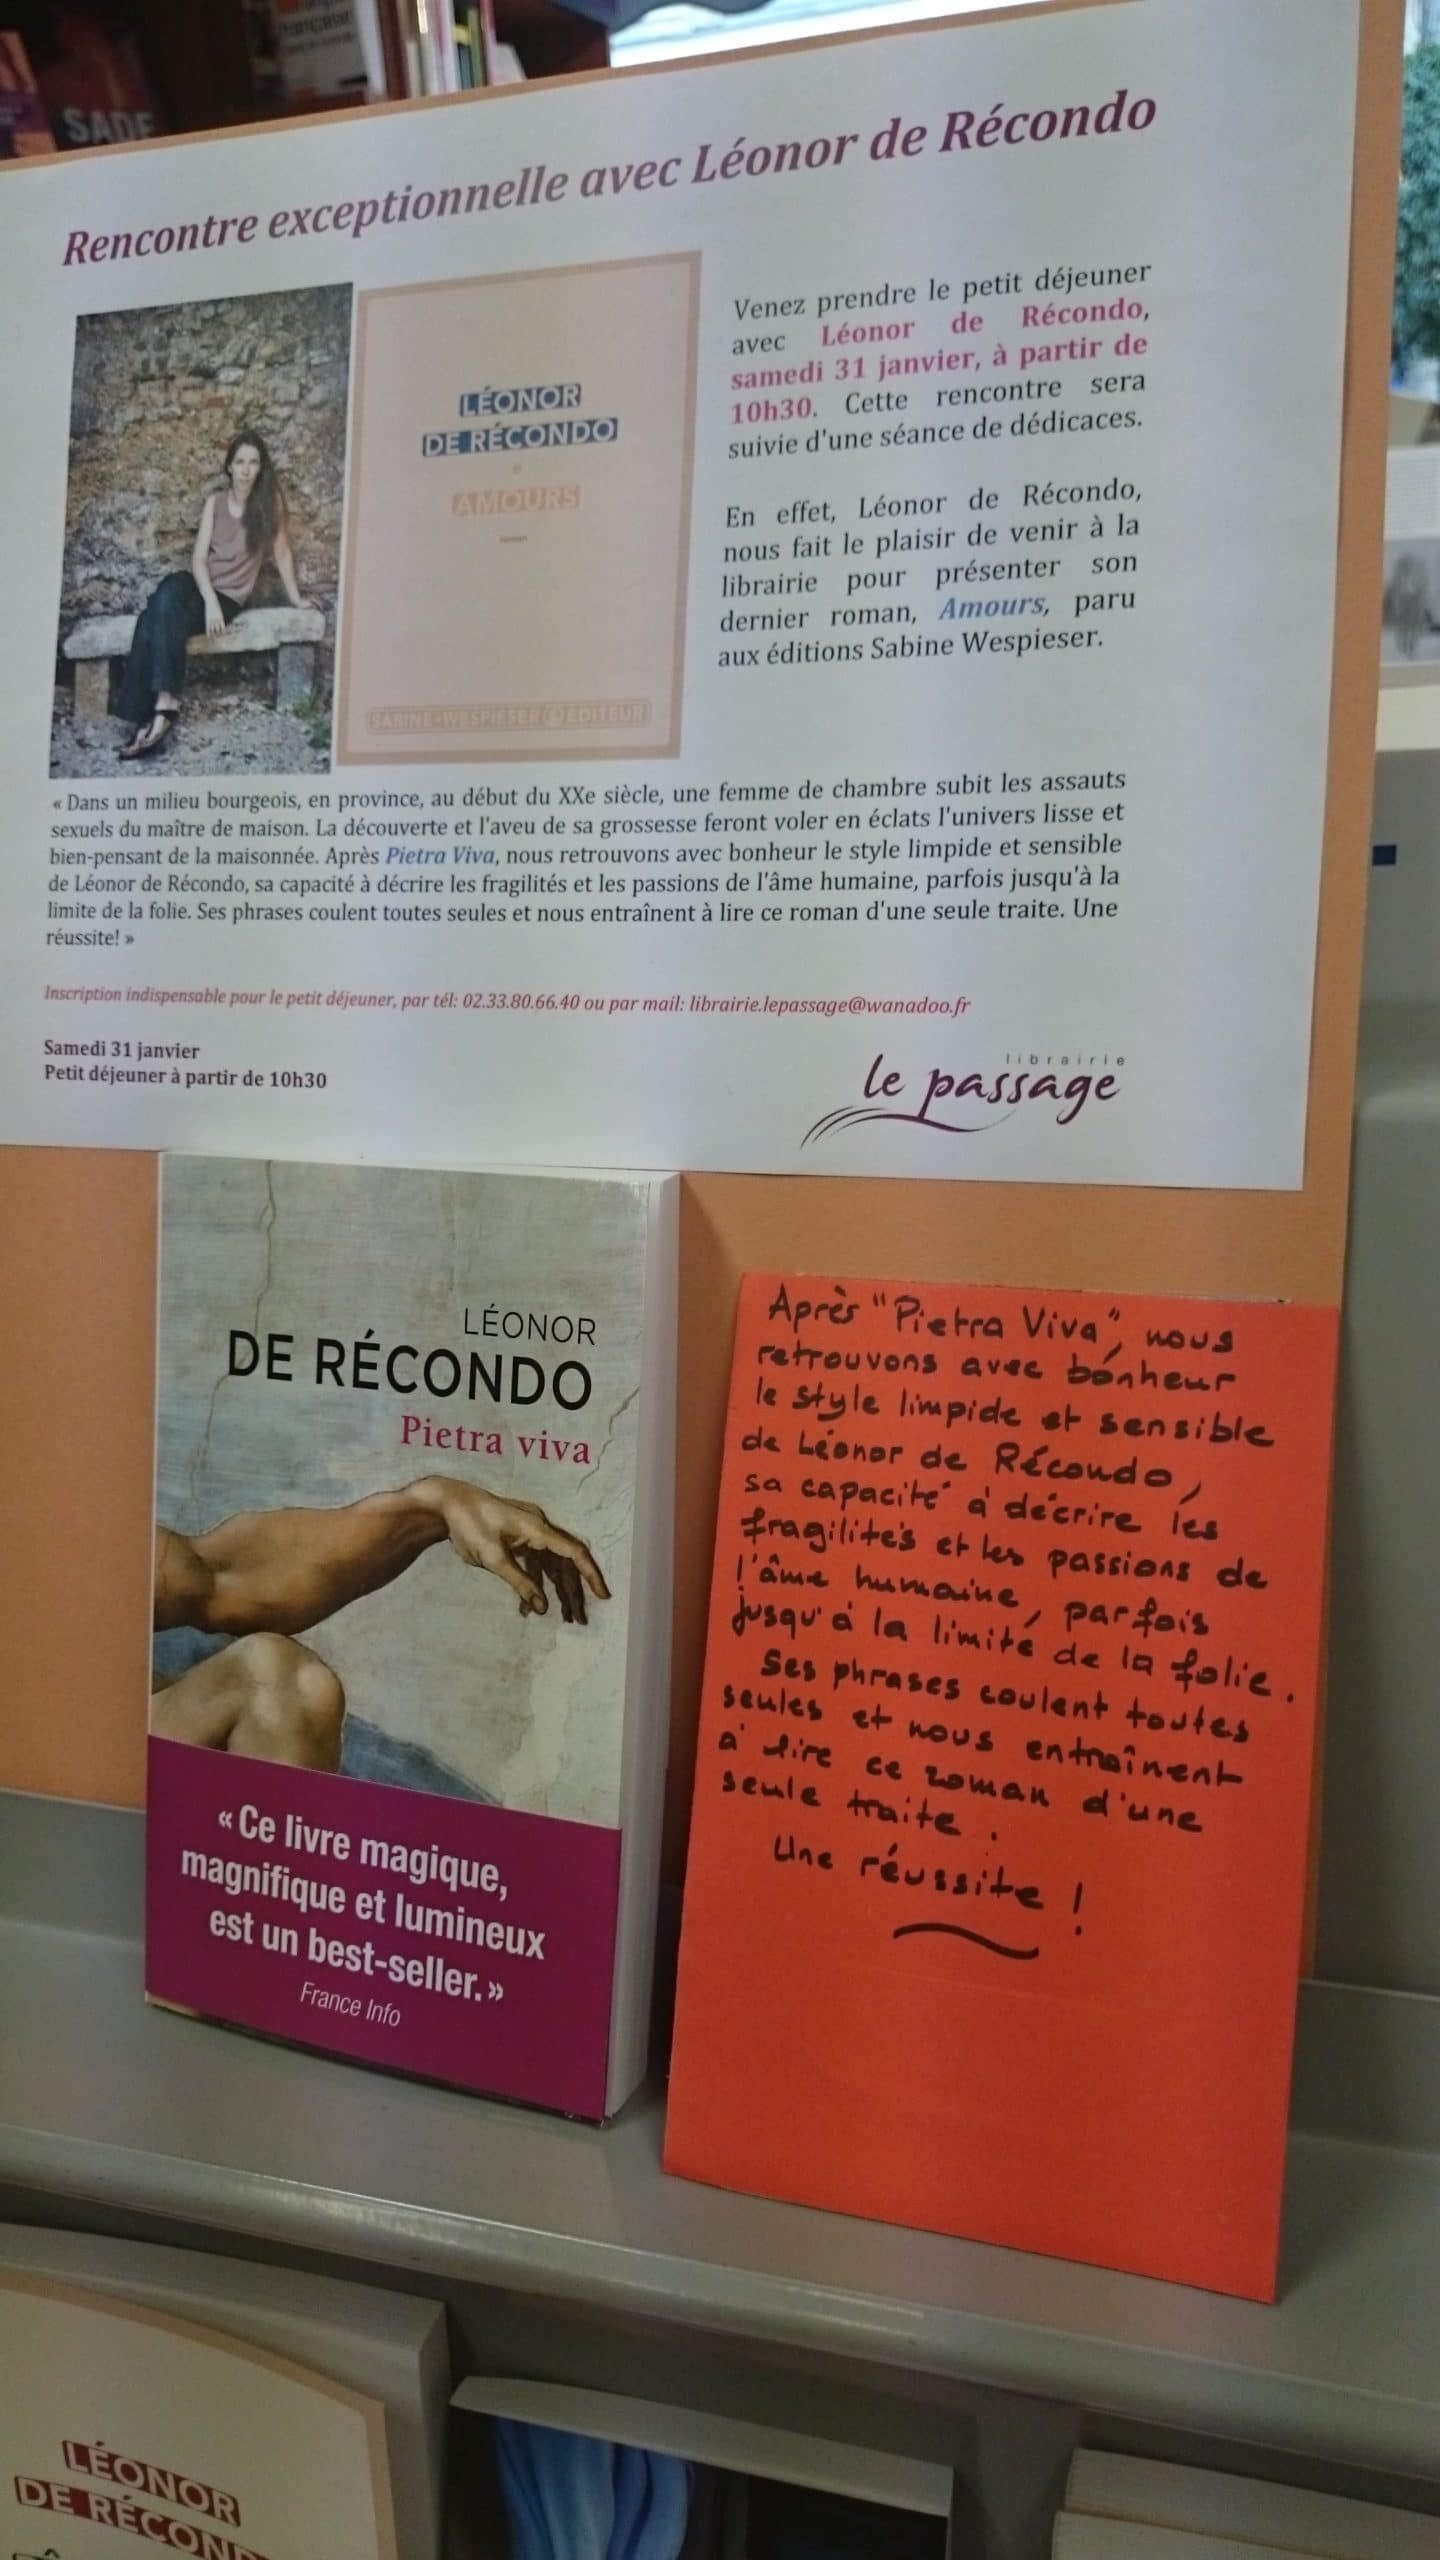 SADE
Rencontre exceptionnelle avec Léonor de Récondo
LÉONOR
DE RÉCONDO
AMOURS
roman
SABINE WESPIESER ÉDITEUR
Venez prendre le petit déjeuner
avec Léonor de Récondo,
samedi 31 janvier, à partir de
10h30. Cette rencontre sera
suivie d'une séance de dédicaces.
En effet, Léonor de Récondo,
nous fait le plaisir de venir à la
librairie pour présenter son
dernier roman, Amours, paru
aux éditions Sabine Wespieser.
« Dans un milieu bourgeois, en province, au début du XXe siècle, une femme de chambre subit les assauts
sexuels du maître de maison. La découverte et l'aveu de sa grossesse feront voler en éclats l'univers lisse et
bien-pensant de la maisonnée. Après Pietra Viva, nous retrouvons avec bonheur le style limpide et sensible
de Léonor de Récondo, sa capacité à décrire les fragilités et les passions de l'âme humaine, parfois jusqu'à la
limite de la folie. Ses phrases coulent toutes seules et nous entraînent à lire ce roman d'une seule traite. Une
réussite! »
Inscription indispensable pour le petit déjeuner, par tél: 02.33.80.66.40 ou par mail: librairie.lepassage@wanadoo.fr
Samedi 31 janvier
Petit déjeuner à partir de 10h30
librairie
le passage
LÉONOR
DE RÉCONDO
Pietra viva
« Ce livre magique,
magnifique et lumineux
est un best-seller. »
France Info
Après "Pietra Viva", nous
retrouvons avec bonheur
le style limpide et sensible
de Léonor de Récondo,
sa capacité à décrire les
fragilités et les passions de
l'âme humaine, parfois
jusqu'à la limite de la folie.
Ses phrases coulent toutes
seules et nous entraînent
à lire ce roman d'une
seule traite.
Une réussite !
LÉONOR
DE RÉCOND